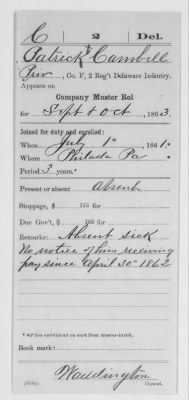 C 2 Del.
Patrick Cambell
Priv, Co. F, 2 Reg't Delaware Infantry.
Appears on
Company Muster Roll
for Sept & Oct, 1863.
Joined for duty and enrolled:
When July 1", 1861.*
Where Philada Pa
Period 3 years.*
Present or absent Absent
Stoppage, $ 100 for
Due Gov't, $ 100 for
Remarks: Absent sick
No notice of him receiving
pay since April 30" 1862
*See enrollment on card from muster-in roll.
Book mark:
Waddington
Copyist.